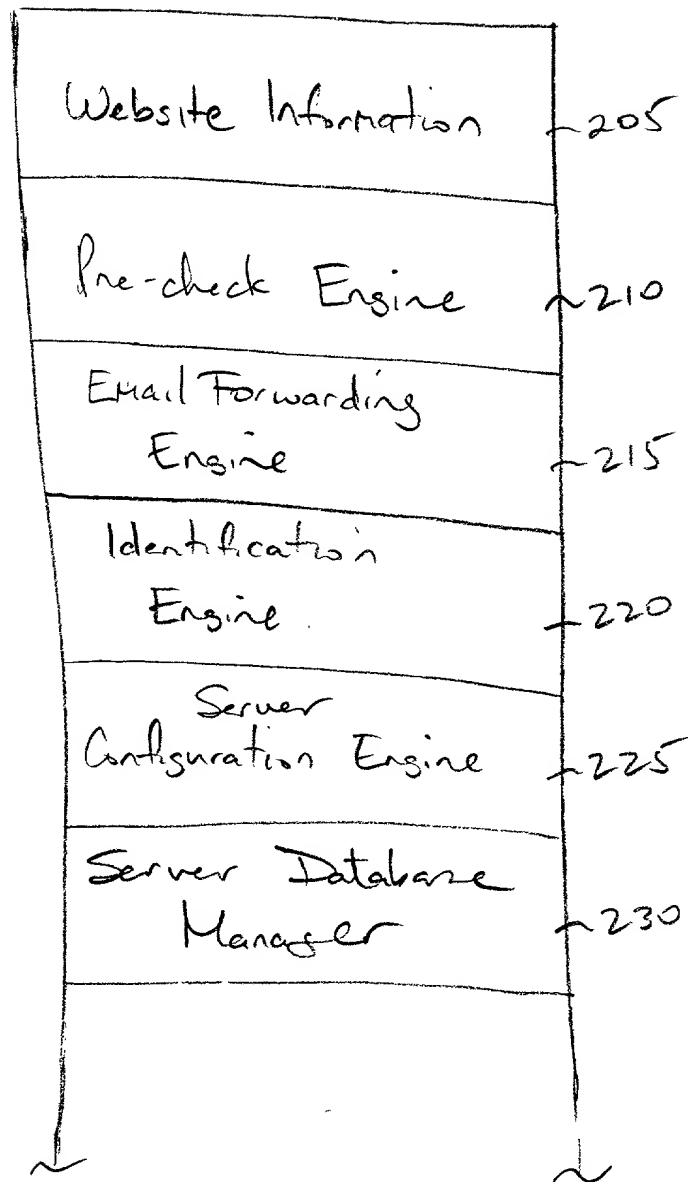 Website Information
205
Pre-check Engine
210
Email Forwarding
Engine
215
Identification
Engine
220
Server
Configuration Engine
225
Server Database
Manager
230